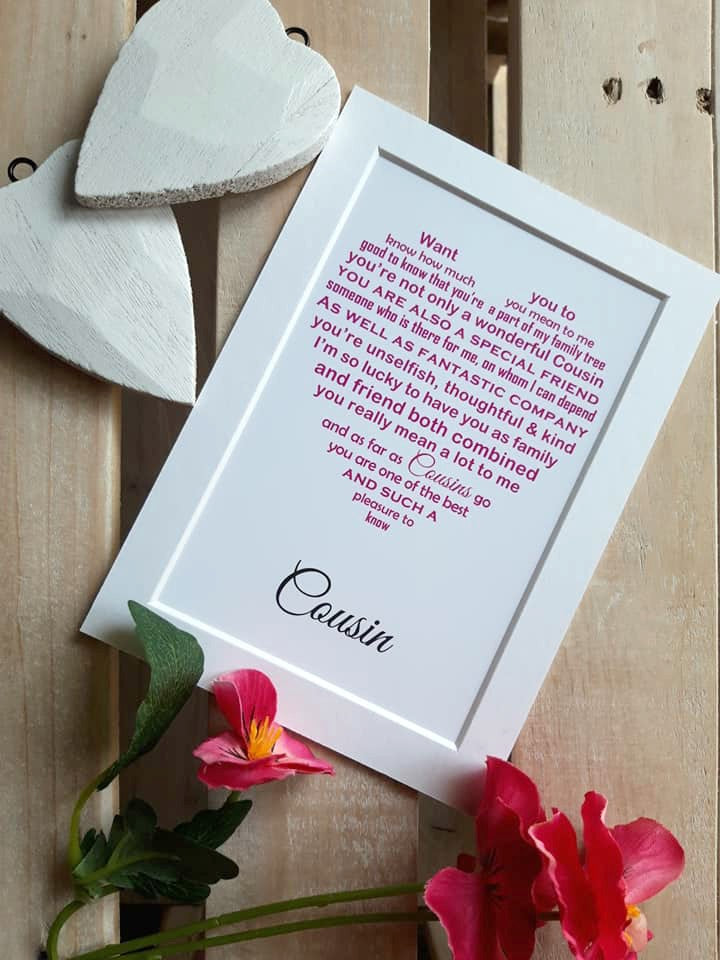 Want you to
know how much you mean to me
good to know that you're a part of my family tree
you're not only a wonderful Cousin
YOU ARE ALSO A SPECIAL FRIEND
someone who is there for me, on whom I can depend
AS WELL AS FANTASTIC COMPANY
you're unselfish, thoughtful & kind
I'm so lucky to have you as family
and friend both combined
you really mean a lot to me
and as far as Cousins go
you are one of the best
AND SUCH A
pleasure to
know
Cousin